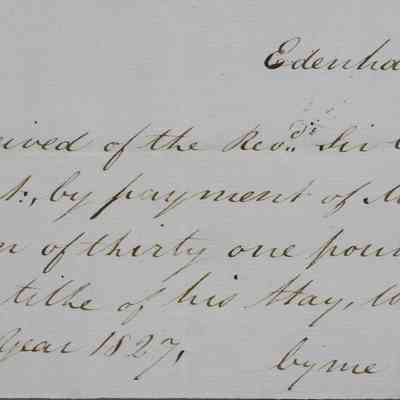 Edenha
eived of the Revd. Sir
t:, by payment of M
m of thirty one poun
tithe of his Hay,
Year 1827,
by me